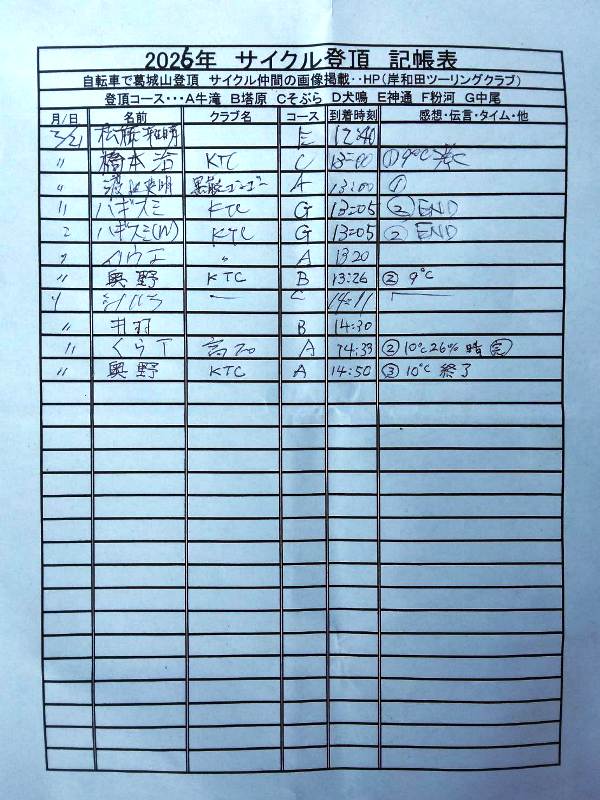 2026年 サイクル登頂 記帳表
自転車で葛城山登頂 サイクル仲間の画像掲載‥HP(岸和田ツーリングクラブ)
登頂コース･･･A牛滝 B塔原 Cそぶら D犬鳴 E神通 F粉河 G中尾
月/日 名前 クラブ名 コース 到着時刻 感想・伝言・タイム・他
3/21 E 12:40
〃 橋本治 KTC C 13:00 ① 9℃
〃 A 13:00 ①
〃 ハギスミ KTC G 13:05 ② END
〃 ハギスミ(W) KTC G 13:05 ② END
〃 A 13:20
〃 奥野 KTC B 13:26 ② 9℃
C 14:11
〃 井羽 B 14:30
〃 くらT A 14:33 ② 10℃ 26% 晴
〃 奥野 KTC A 14:50 ③ 10℃ 終了